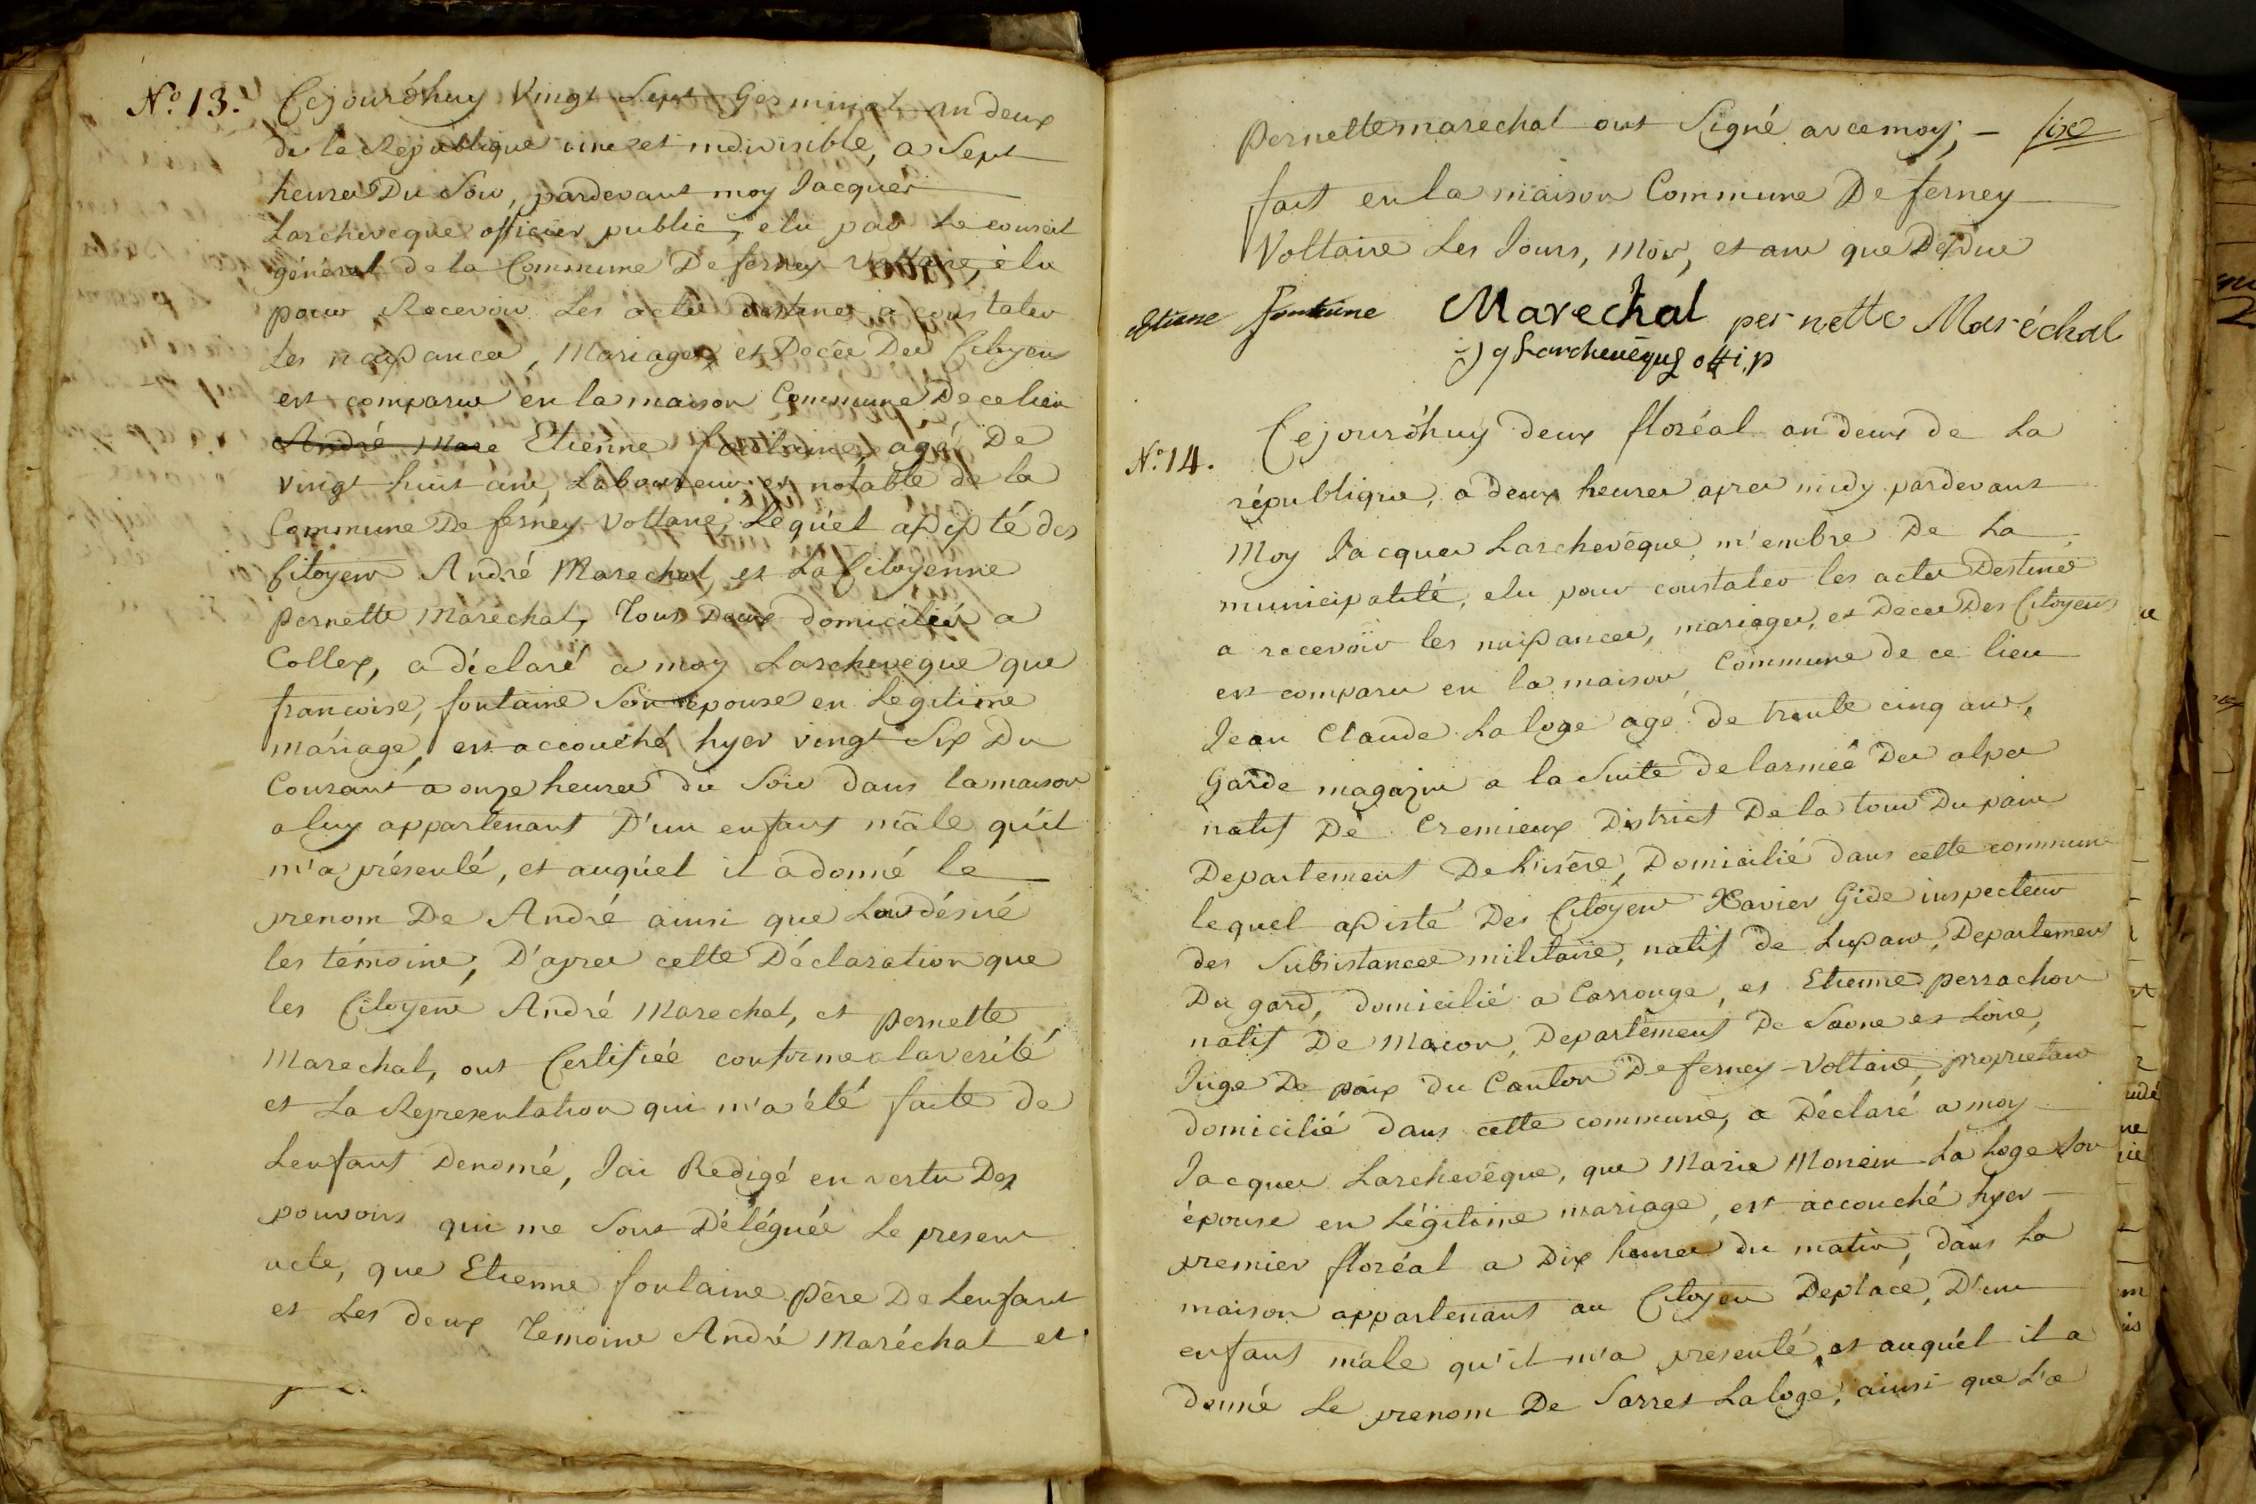 N.º 13. Cejourd'huy Vingt Sept Germinal an deux
de la République une et indivisible, a Sept
heures Du Soir, pardevant moy Jacques
Larcheveque officier public, elu par Le conseil
général de la Commune De ferney Voltaire, élu
pour Recevoir Les actes destinés a constater
les naissances, Mariages, et Decès Des Citoyens
est comparu en la maison Commune De ce lieu
André Mare Etienne fontaine, agé De
vingt huit ans, Laboureur et notable de la
Commune De ferney-Voltaire, Lequel assisté des
Citoyens André Marechal, et La Citoyenne
pernette Maréchal, Tous Deux domiciliés a
Collex, a déclaré a moy Larcheveque que
francoise, fontaine Son epouse en Legitime
mariage, est accouché hyer vingt Six Du
Courant a onze heures du Soir dans la maison
a luy appartenant D'un enfant mâle qu'il
m'a présenté, et auquel il a donné le
prenom De André ainsi que L'ont désiré
les témoins, D'apres cette Déclaration que
les Citoyens André Marechal, et pernette
Marechal, ont Certifiée conforme a la verité
et La Representation qui m'a été faite de
Lenfant Denomé, Jai Redigé en vertu Des
pouvoirs qui me Sont Délégués Le present
acte, que Etienne fontaine père De Lenfant
et Les deux Temoins André Maréchal et
pernette marechal ont Signé avec moy, — six
fait en la maison Commune De ferney
Voltaire Les Jours, Mois, et an que Dessus
etiene fontaine Marechal pernette Maréchal
Jq Larchevêque off. p
N.º 14. Cejourd'huy deux floréal an deux de La
république, a deux heures apres midy pardevant
Moy Jacques Larchevêque, membre De La
municipalité, elu pour constater les actes Destinés
a recevoir les naissances, mariages, et Deces Des Citoyens
est comparu en la maison Commune de ce lieu
Jean Claude Laloge agé de trente cinq ans,
Garde magazin a la Suite de larmée Des alpes
natif De Cremieux District De la tour Du pain
Departement De L'isère, Domicilié dans cette commune
lequel assisté Des Citoyens Xavier Gide inspecteur
des Subsistances militaire, natif de Lussan, Departement
Du gard, domicilié a Carrouge, et Etienne perrachon
natif De Macon, Departement De Saone et Loire,
Juge De paix du Canton De ferney-Voltaire, proprietaire
domicilié dans cette commune, a Déclaré a moy
Jacques Larchevêque, que Marie La Loge Son
épouse en Légitime mariage, est accouché hyer
premier floréal a Dix heures du matin, dans La
maison appartenant au Citoyen Deplace, D'un
enfant mâle qu'il m'a presenté, et auquel il a
donné Le prenom De Sarret Laloge, ainsi que L'a